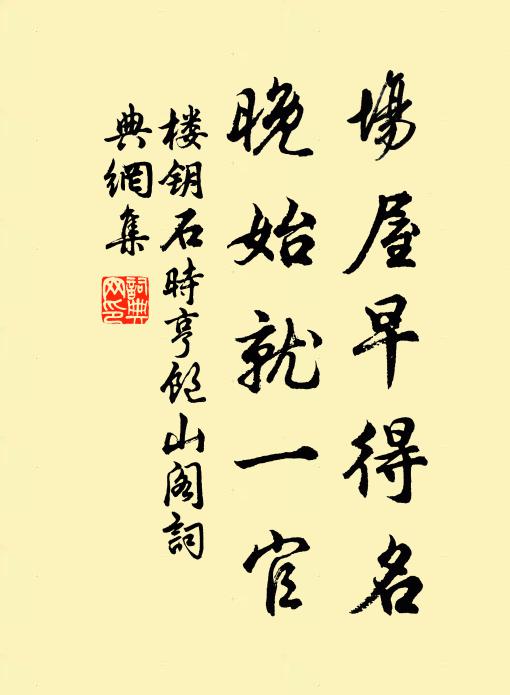 場屋早得名
晚始就一官
楼钥石時亨飽山阁詞
典網集
詞典
网印